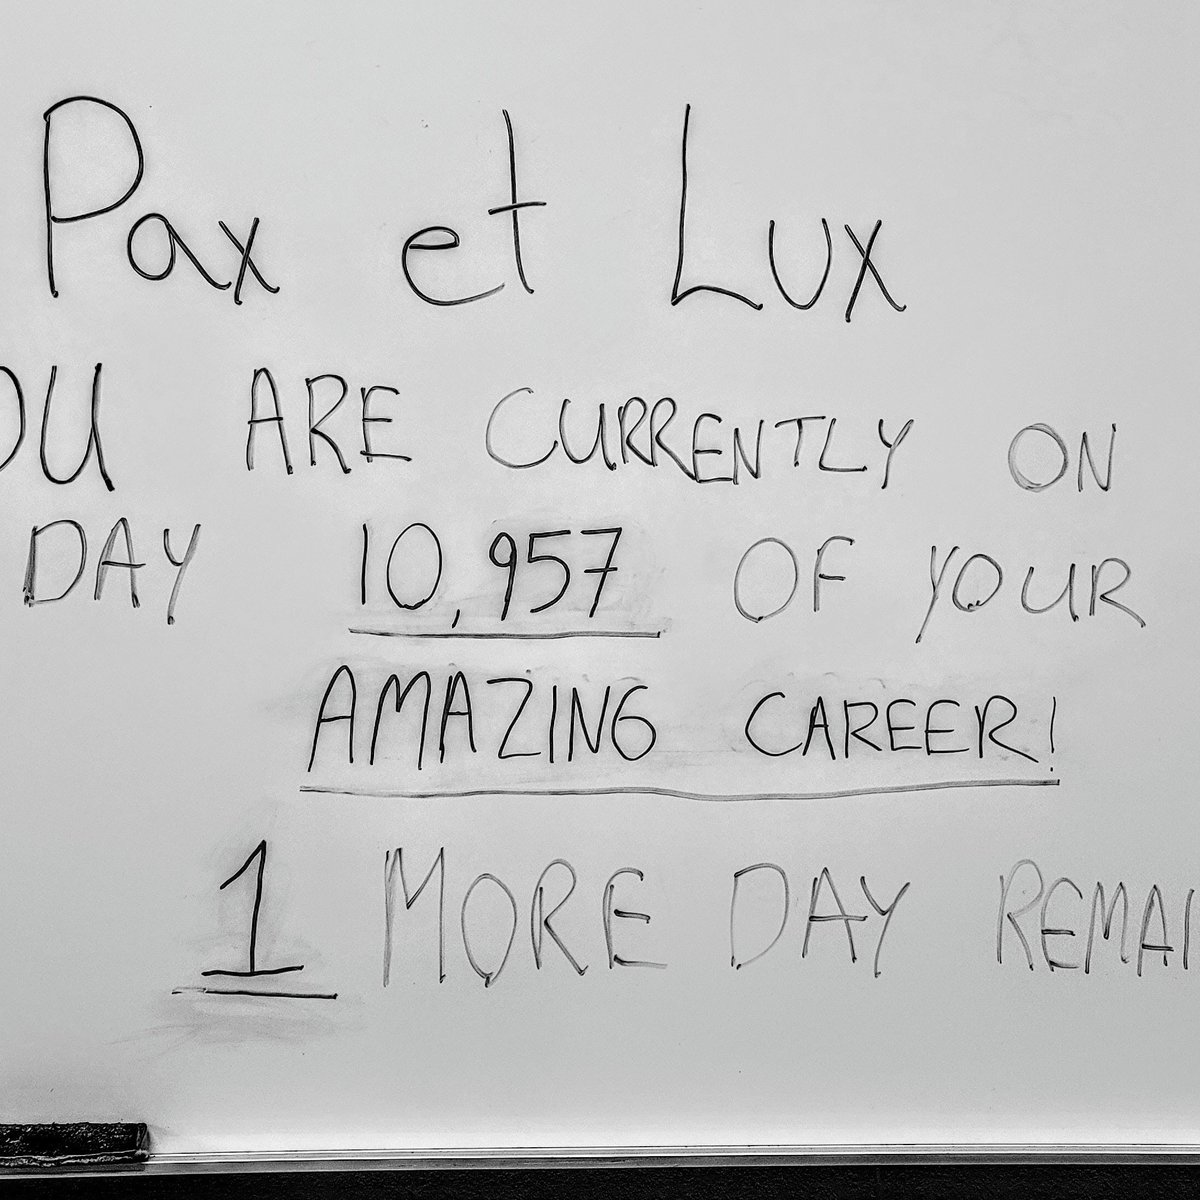 Pax et Lux
OU ARE CURRENTLY ON
DAY 10,957 OF YOUR
AMAZING CAREER!
1 MORE DAY REMAI